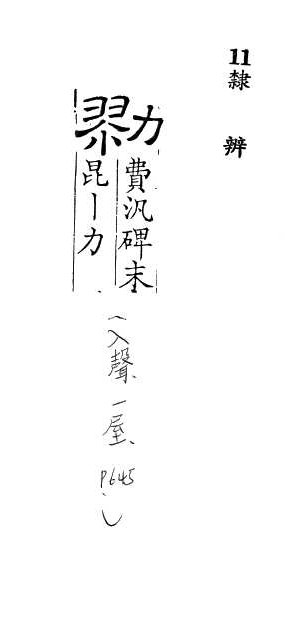 11隸辨
勠
費汎碑末
昆｜力
（入聲、一屋、P645）